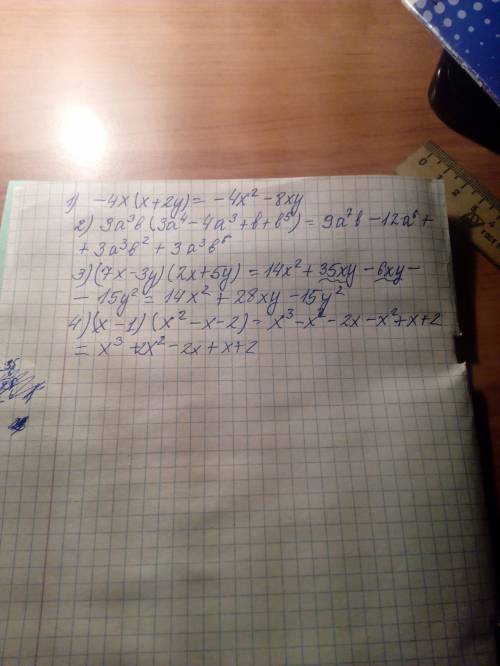 1) -4x(x+2y)= -4x² -8xy
2) 3a³b(3a⁴-4a³+b+b⁵)=9a⁷b-12a⁶+
+3a³b²+3a³b⁶
3)(7x-3y)(2x+5y)=14x²+35xy-6xy-
-15y²=14x²+28xy-15y²
4)(x-1)(x²-x-2)=x³-x²-2x-x²+x+2
= x³+2x²-2x+x+2